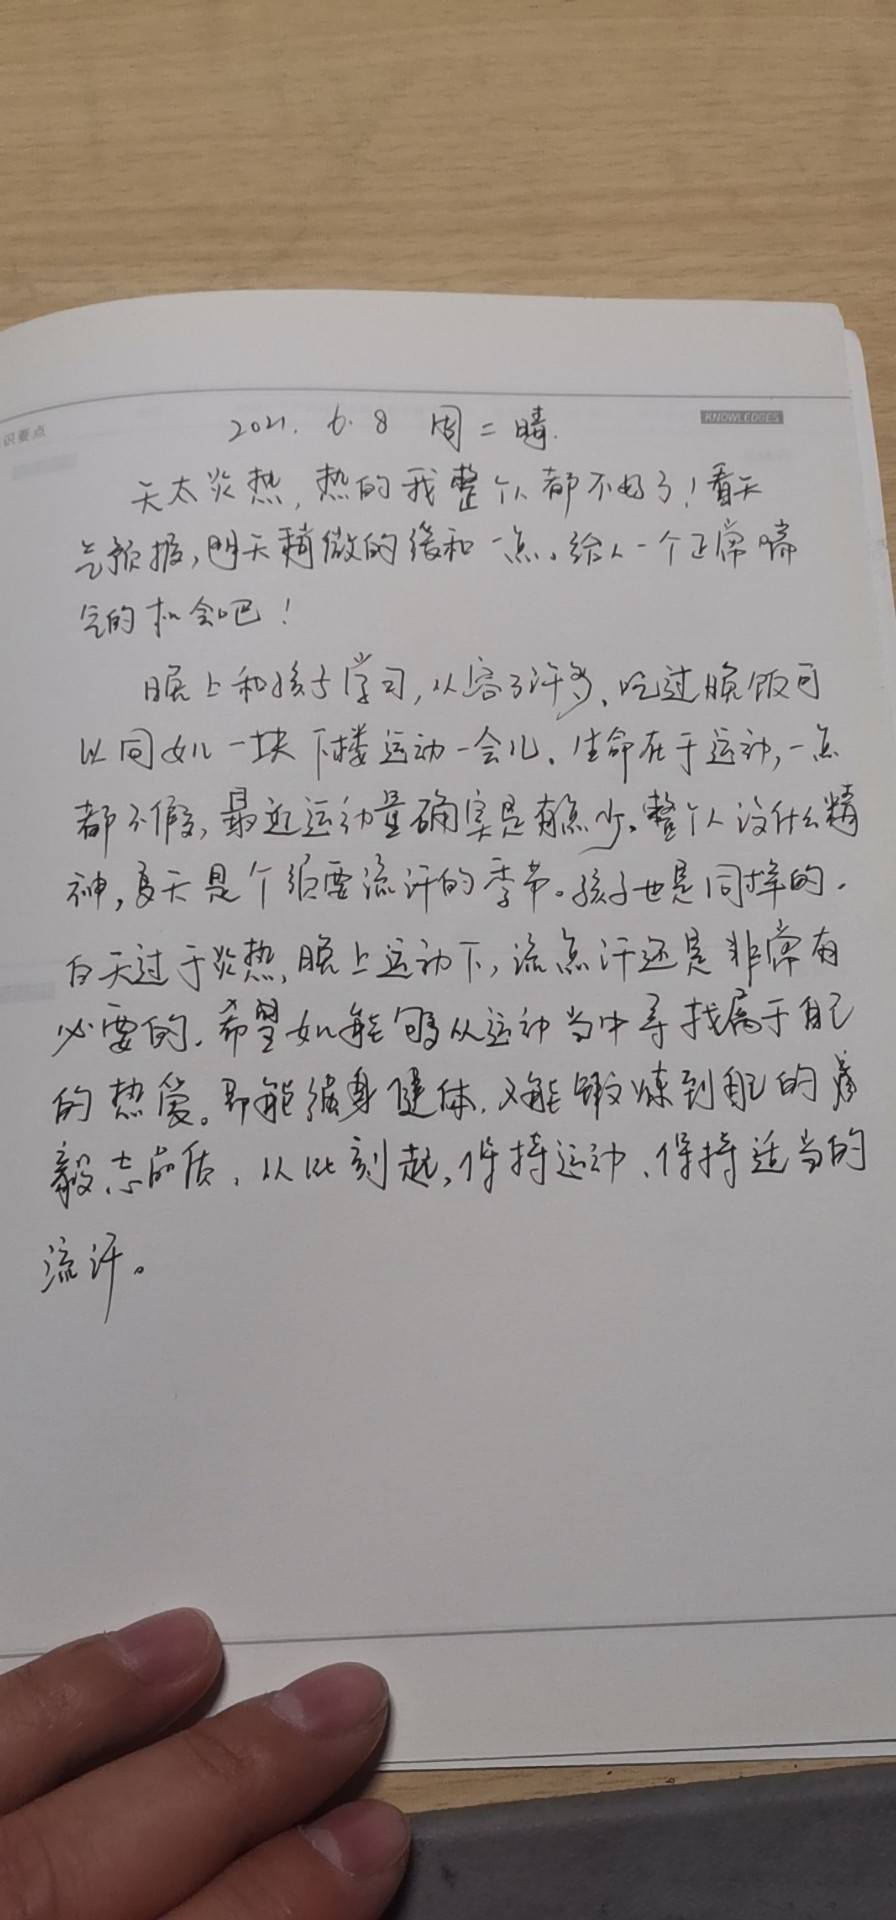 识要点
KNOWLEDGES
2021.6.8 周二晴.
天太炎热,热的我整个人都不好了!看天
气预报,明天稍微的缓和一点。给人一个正常喘
气的机会吧!
晚上和孩子学习,从容了许多、吃过晚饭可
以同如儿一块下楼运动一会儿.生命在于运动,一点
都不假,最近运动量确实是有点少。整个人没什么精
神,夏天是个须要流汗的季节。孩子也是同样的.
白天过于炎热,晚上运动下,流点汗还是非常有
必要的.希望如儿能够从运动当中寻找属于自己
的热爱。即能强身健体.又能锻炼到自己的
毅志品质.从此刻起,保持运动、保持适当的
流汗。